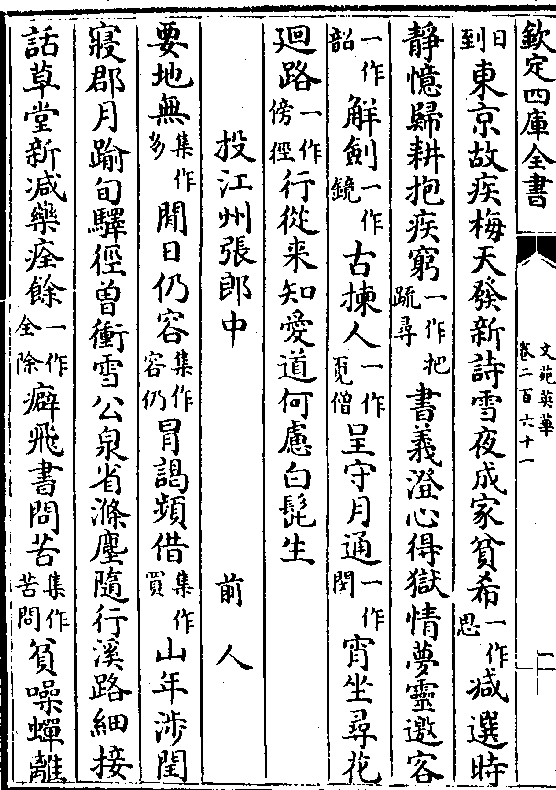 欽定四庫全書
文苑英華
卷二百六十一
一一
日到東京故疾梅天發新詩雪夜成家貧希一作思減選時
靜憶歸耕抱疾窮一作把疏尋書義澄心得獄情夢靈邀客
一作韶解劍一作鏡古揀人一作覓僧呈守月通一作閉宵坐尋花
廻路一作傍徑行從来知愛道何慮白髭生
投江州張郎中 前人
要地無集作多閒日仍容集作容仍冒謁頻借集作買山年涉閏
寢郡月踰旬驛徑曾衝雪公泉省滌塵隨行溪路細接
話草堂新減藥痊餘一作全除癖飛書問苦集作苦問貧噪蟬離